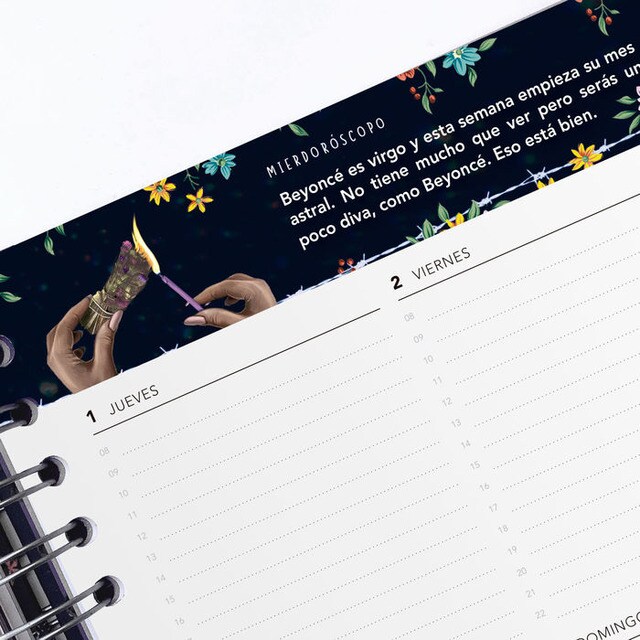 MIERDORÓSCOPO
Beyoncé es virgo y esta semana empieza su mes
astral. No tiene mucho que ver pero serás un
poco diva, como Beyoncé. Eso está bien.
1 JUEVES
08
09
10
11
12
13
14
15
16
2 VIERNES
08
09
10
11
12
13
14
15
16
17
18
19
20
21
22
DOMINGO